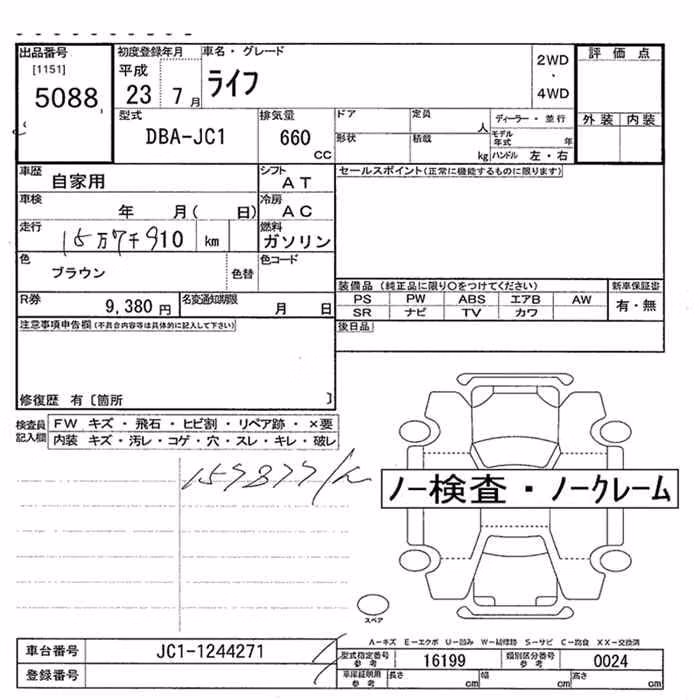 出品番号 初度登録年月 車名・グレード 2WD・4WD 評価点
[1151] 平成 ライフ
5088 23 7月
外装 内装
型式 排気量 ドア 定員 人 ディーラー・並行
DBA-JC1 660 CC 形状 積載 kg モデル年式 年
ハンドル 左・右
車歴 自家用 シフト AT セールスポイント(正常に機能するものに限ります)
車検 年 月( 日) 冷房 AC
走行 km 燃料 ガソリン
色 ブラウン 色替 色コード
装備品 (純正品に限り○をつけてください) 新車保証書
PS PW ABS エアB AW 有・無
R券 9,380円 名変通知期限 月 日 SR ナビ TV カワ
注意事項申告欄(不具合内容等は具体的に記入して下さい) 後日品
修復歴 有〔箇所 〕
検査員記入欄 FW キズ・飛石・ヒビ割・リペア跡・×要
内装 キズ・汚レ・コゲ・穴・スレ・キレ・破レ
ノー検査・ノークレーム
スペア
A-キズ E-エクボ U-凹み W-補修跡 S-サビ C-腐食 XX-交換済
車台番号 JC1-1244271 型式指定番号 参考 16199 類別区分番号 参考 0024
登録番号 車庫証明用 参考 長さ cm 幅 cm 高さ cm